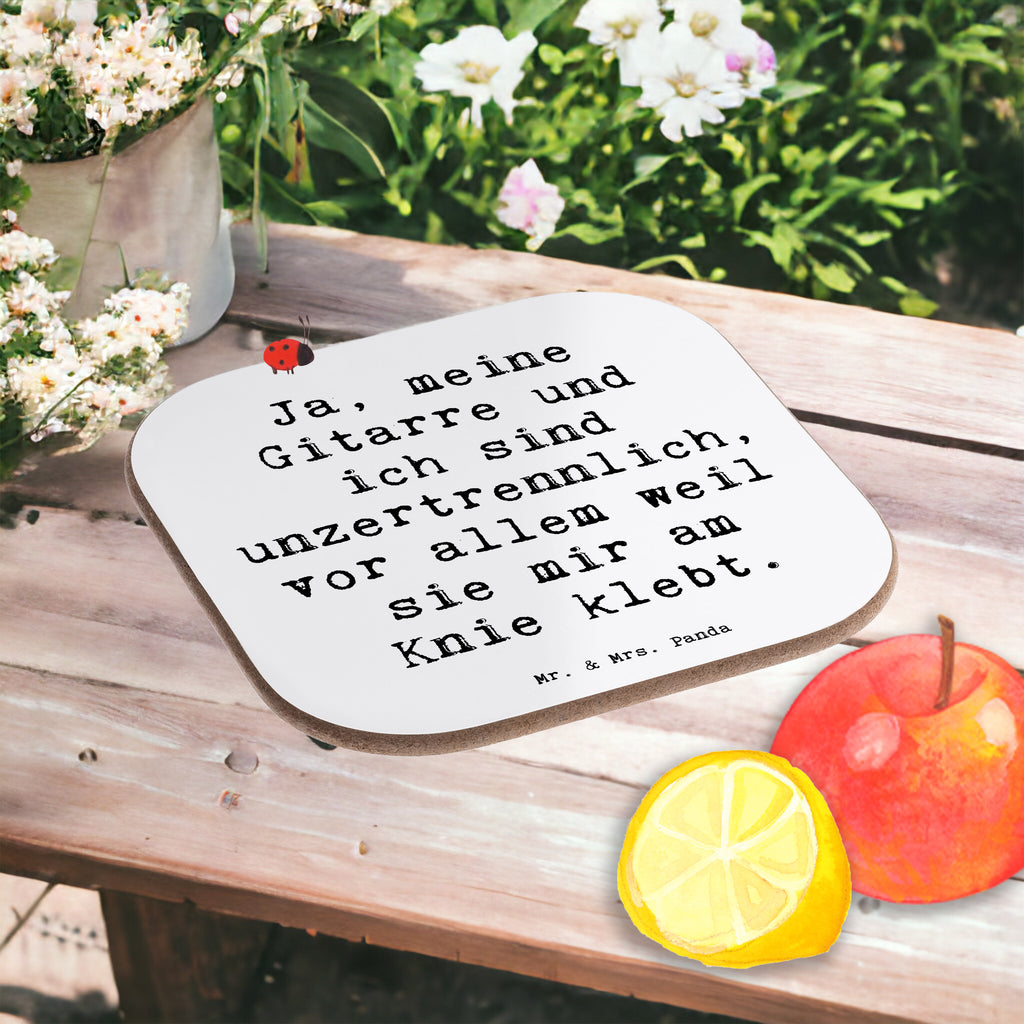 Ja, meine
Gitarre und
ich sind
unzertrennlich,
vor allem weil
sie mir am
Knie klebt.
Mr. & Mrs. Panda